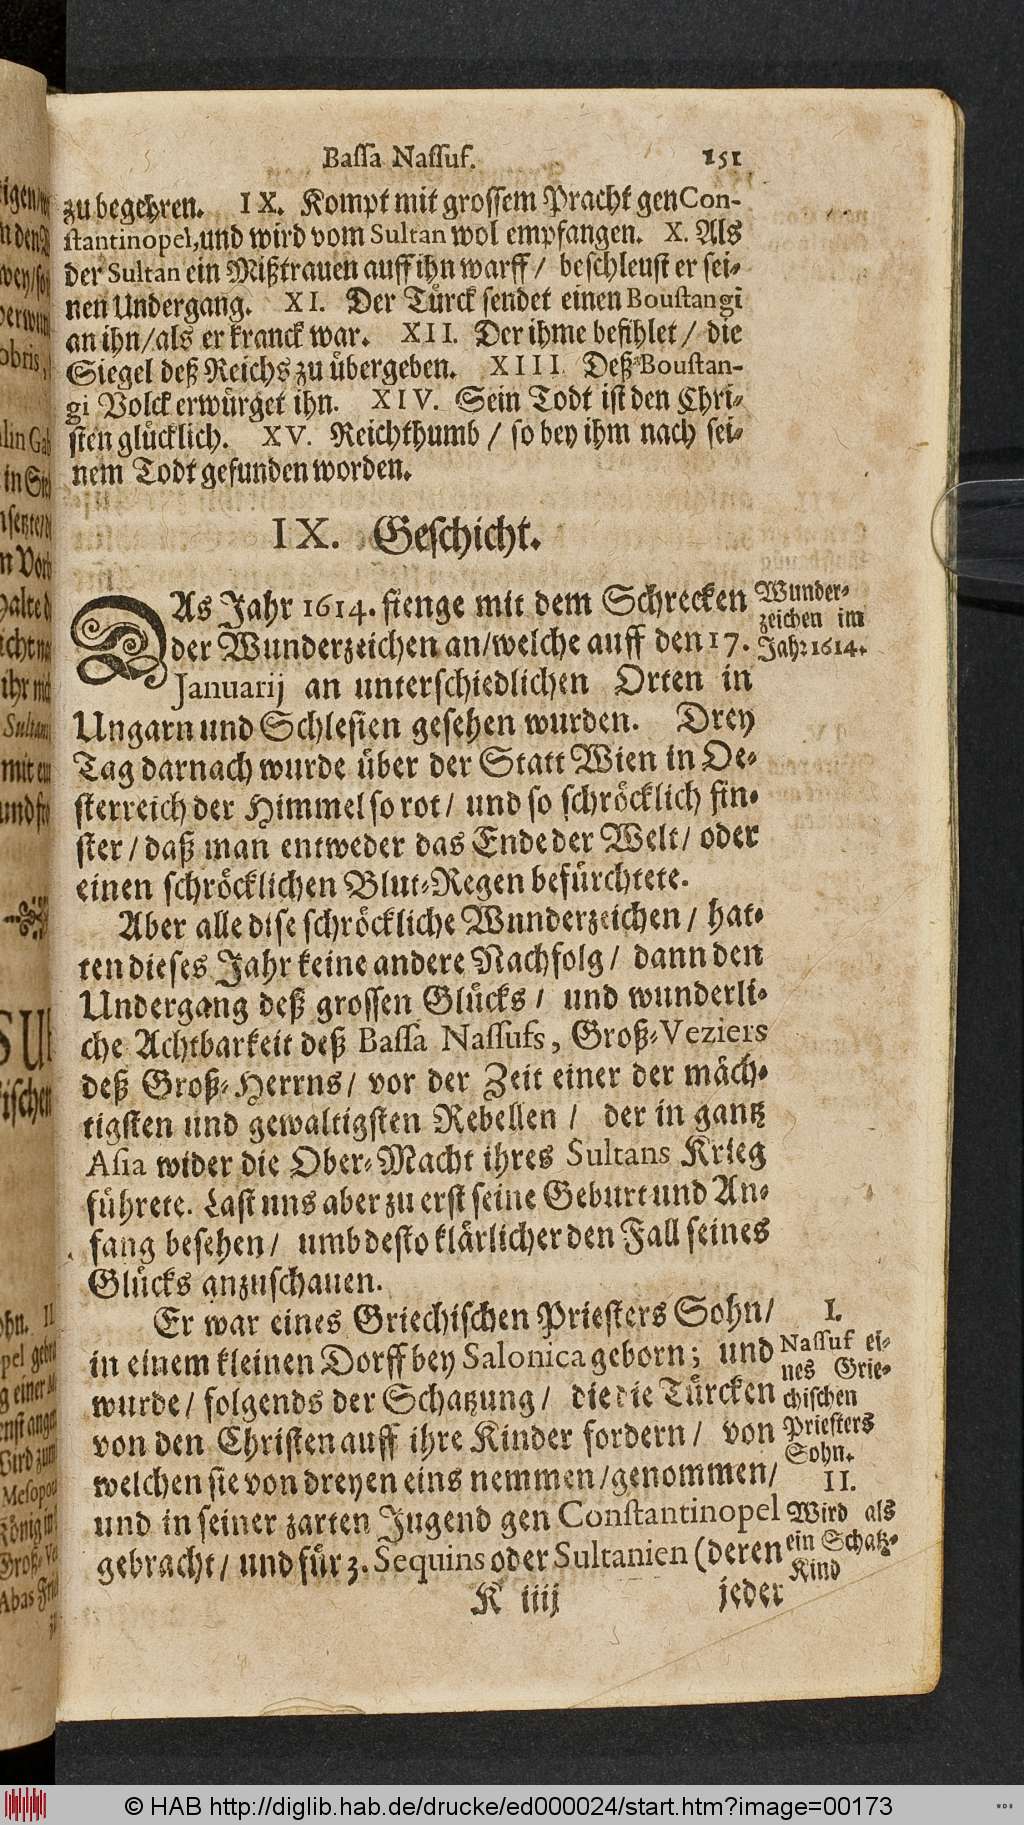 Bassa Nassuf. 151
zu begehren. IX. Kompt mit grossem Pracht gen Con-
stantinopel, und wird vom Sultan wol empfangen. X. Als
der Sultan ein Mißtrauen auff ihn warff / beschleust er sei-
nen Undergang. XI. Der Türck sendet einen Boustangi
an ihn / als er kranck war. XII. Der ihme befihlet / die
Siegel deß Reichs zu übergeben. XIII. Deß Boustan-
gi Volck erwürget ihn. XIV. Sein Todt ist den Chri-
sten glücklich. XV. Reichthumb / so bey ihm nach sei-
nem Todt gefunden worden.
IX. Geschicht.
DAs Jahr 1614. fienge mit dem Schrecken
der Wunderzeichen an / welche auff den 17.
Januarij an unterschiedlichen Orten in
Ungarn und Schlesien gesehen wurden. Drey
Tag darnach wurde über der Statt Wien in Oe-
sterreich der Himmel so rot / und so schröcklich fin-
ster / daß man entweder das Ende der Welt / oder
einen schröcklichen Blut-Regen befürchtete.
Wunder-
zeichen im
Jahr 1614.
Aber alle dise schröckliche Wunderzeichen / hat-
ten dieses Jahr keine andere Nachfolg / dann den
Undergang deß grossen Glücks / und wunderli-
che Achtbarkeit deß Bassa Nassufs, Groß-Veziers
deß Groß-Herrns / vor der Zeit einer der mäch-
tigsten und gewaltigsten Rebellen / der in gantz
Asia wider die Ober-Macht ihres Sultans Krieg
führete. Last uns aber zu erst seine Geburt und An-
fang besehen / umb desto klärlicher den Fall seines
Glücks anzuschauen.
Er war eines Griechischen Priesters Sohn /
in einem kleinen Dorff bey Salonica geborn; und
wurde / folgends der Schatzung / die die Türcken
von den Christen auff ihre Kinder fordern / von
welchen sie von dreyen eins nemmen / genommen /
und in seiner zarten Jugend gen Constantinopel
gebracht / und für 3. Sequins oder Sultanien (deren
I.
Nassuf ei-
nes Grie-
chischen
Priesters
Sohn.
II.
Wird als
ein Schatz-
Kind
K iiij jeder
© HAB http://diglib.hab.de/drucke/ed000024/start.htm?image=00173